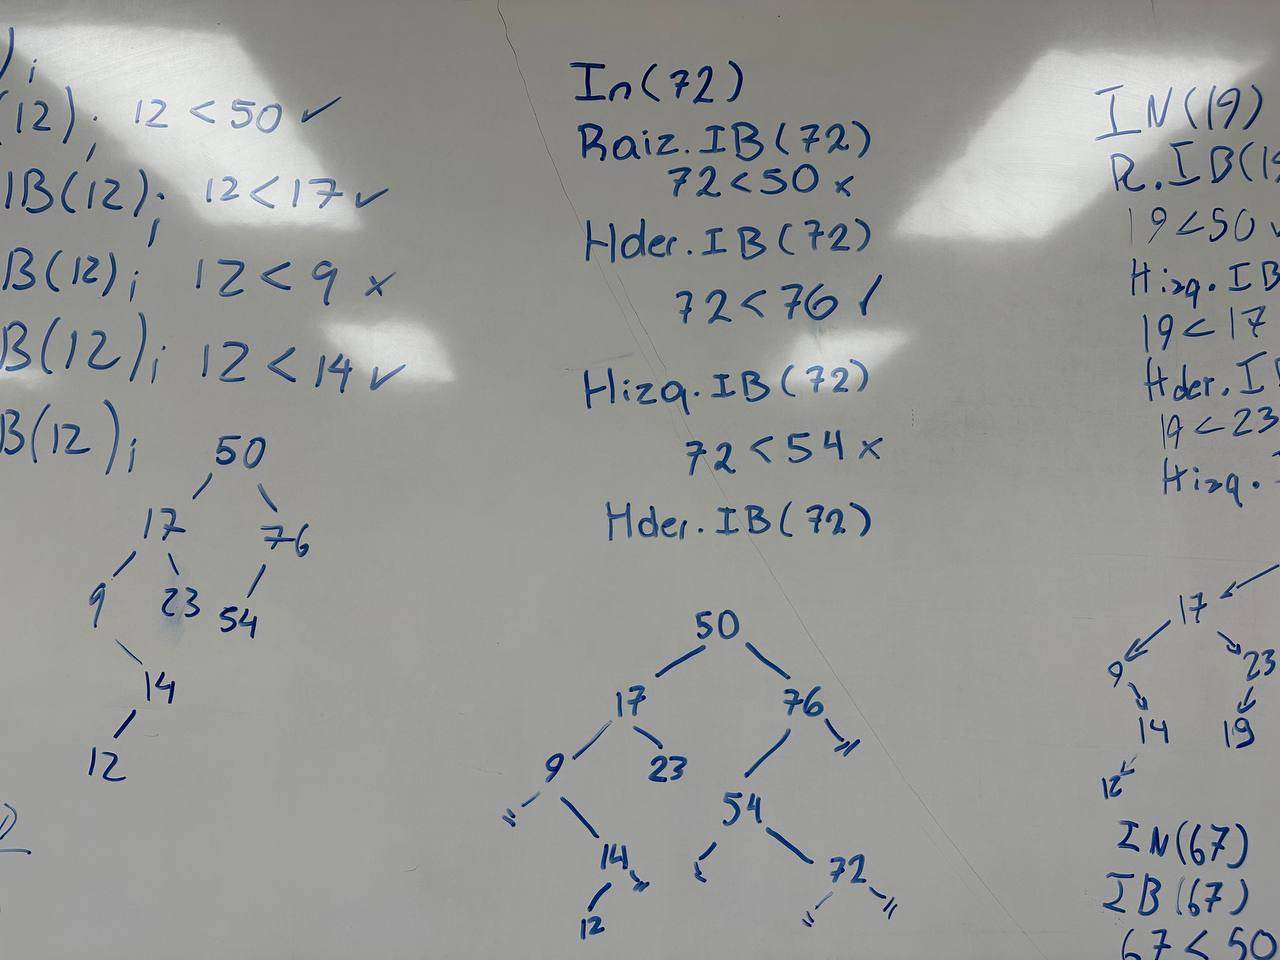 );
(12); 12 < 50 ✓
IB(12); 12 < 17 ✓
B(12); 12 < 9 x
B(12); 12 < 14 ✓
B(12);
50
17 76
9 23 54
14
12
In(72)
Raiz.IB(72)
72 < 50 x
Hder.IB(72)
72 < 76 ✓
Hizq.IB(72)
72 < 54 x
Hder.IB(72)
50
17 76
9 23 54
14 72
12
IN(19)
R.IB(19
19 < 50 ✓
Hizq.IB
19 < 17
Hder.I
19 < 23
Hizq.
17
9 23
14 19
12
IN(67)
IB(67)
67 < 50